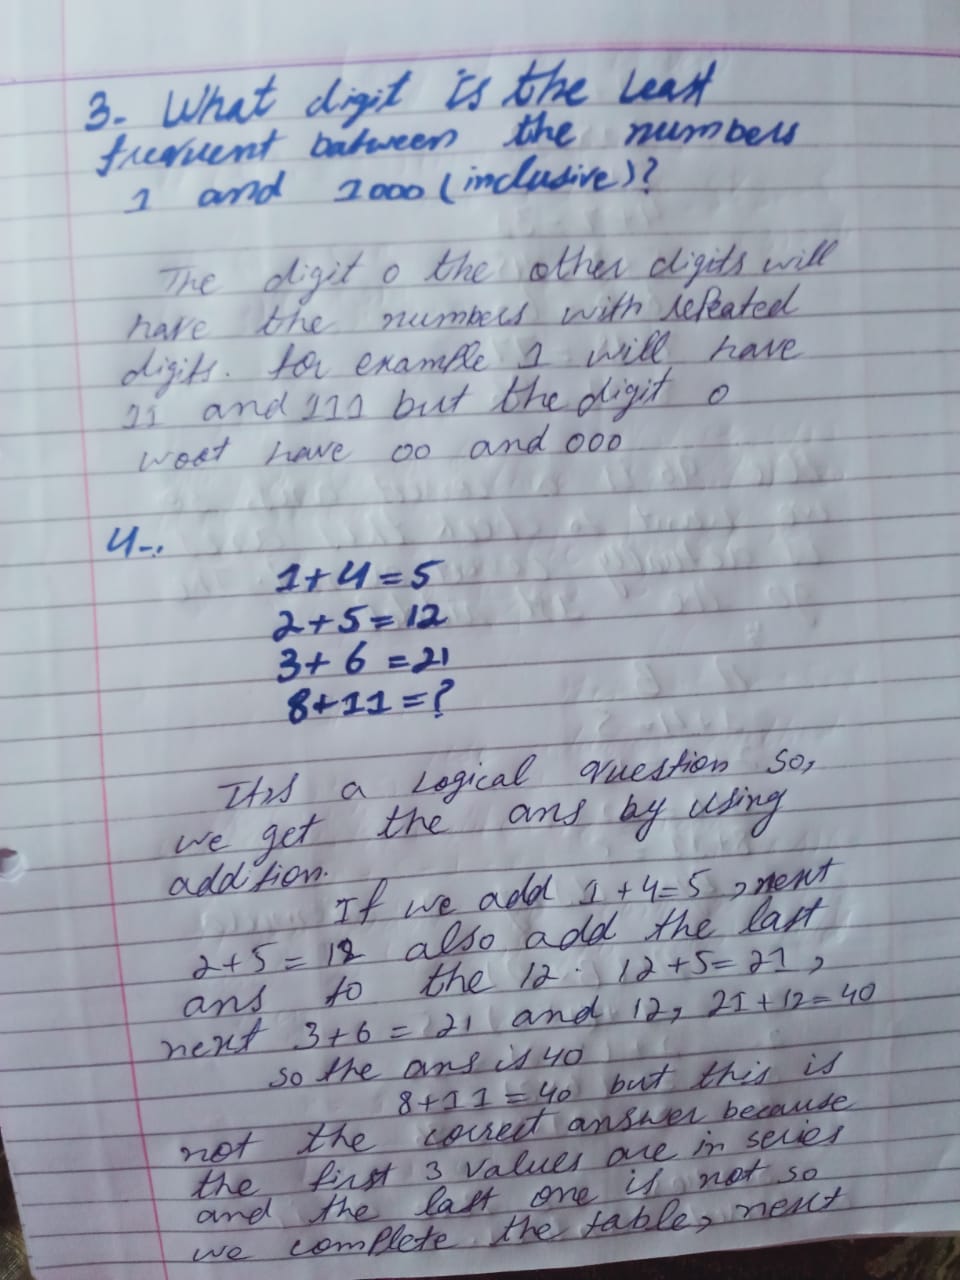 3- What digit is the least
frequent between the numbers
1 and 1000 (inclusive)?
The digit 0 the other digits will
have the numbers with repeated
digits. for example 1 will have
11 and 111 but the digit 0
wont have 00 and 000
4-.
1+4=5
2+5=12
3+6=21
8+11=?
Its a Logical question so,
we get the ans by using
addition.
If we add 1+4=5, next
2+5=12 also add the last
ans to the 12. 12+5=21,
next 3+6=21 and 12, 21+12=40
so the ans is 40
8+11=40 but this is
not the correct answer because
the first 3 values are in series
and the last one is not so
we complete the table, next